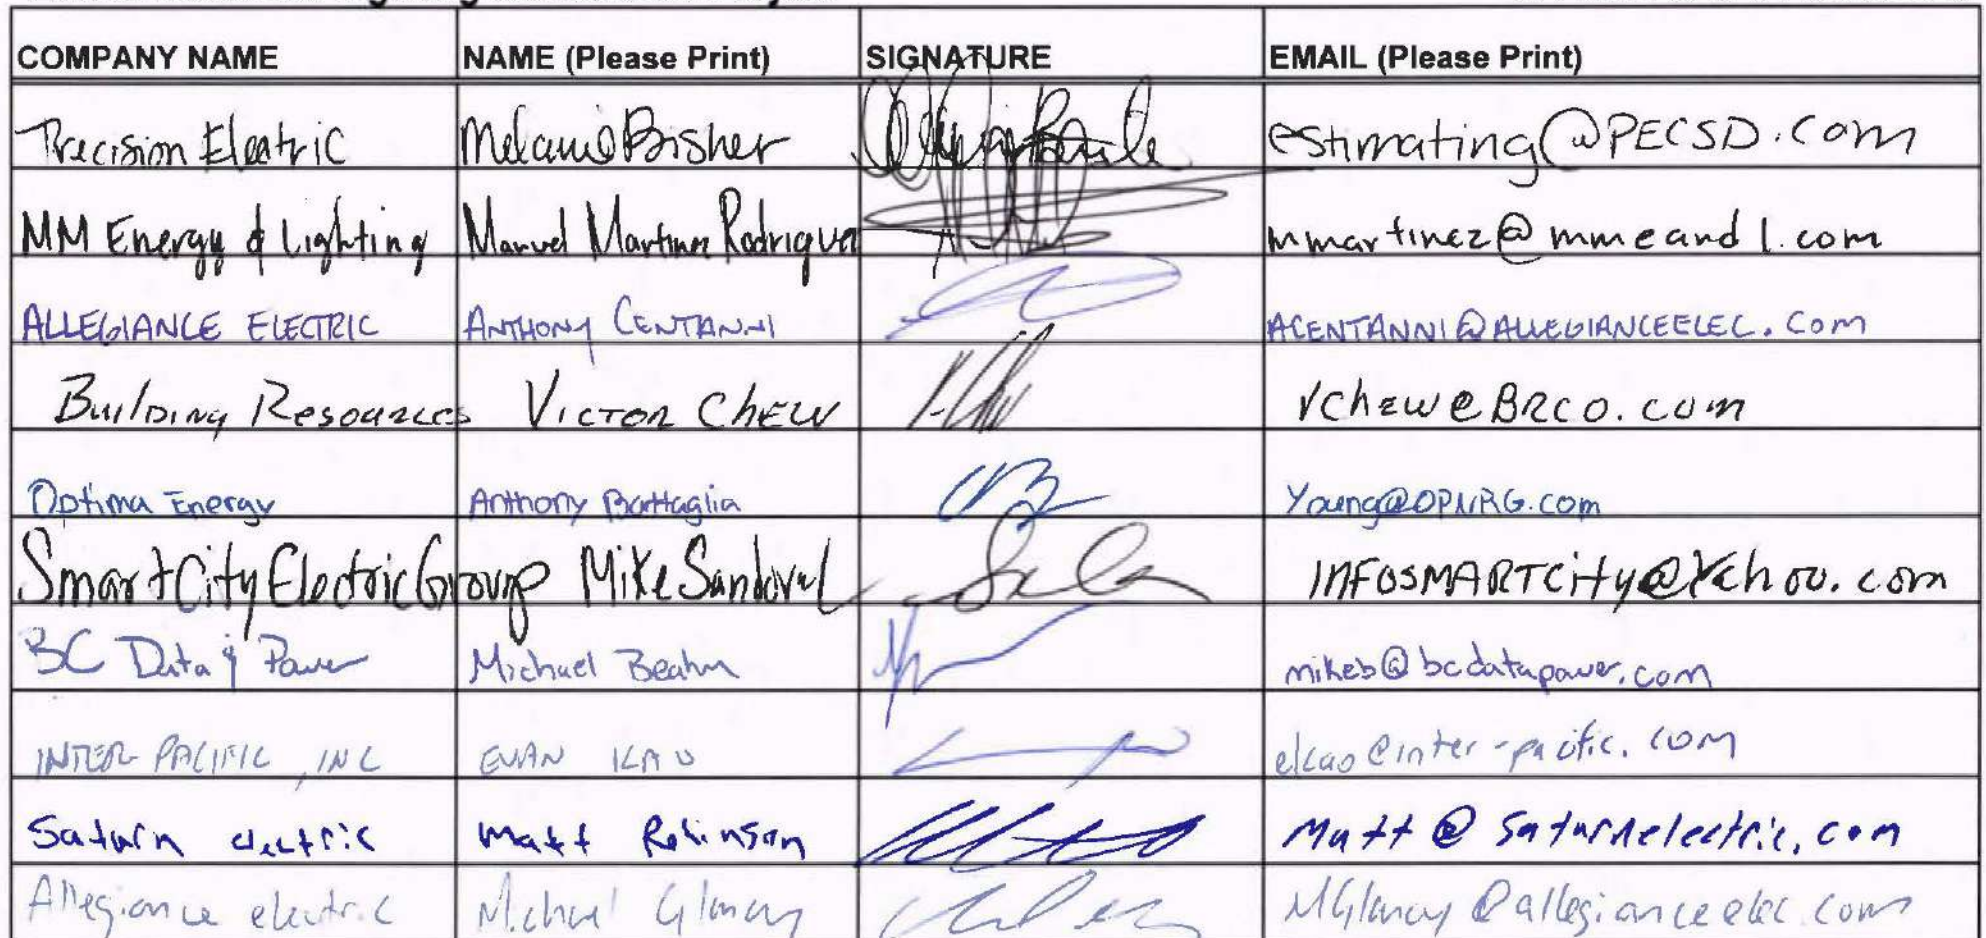 COMPANY NAME NAME (Please Print) SIGNATURE EMAIL (Please Print)
Precision Electric Melanie Bisher estimating@PECSD.com
MM Energy & Lighting Manuel Martinez Rodriguez mmartinez@mmeandl.com
ALLEGIANCE ELECTRIC ANTHONY CENTANNI ACENTANNI@ALLEGIANCEELEC.COM
Building Resources VICTOR CHEW VChew@BRCO.com
Optima Energy Anthony Battaglia Young@OPNRG.com
SmartCityElectricGroup Mike Sandoval INFOSMARTCity@Yahoo.com
BC Data & Power Michael Beahm mikeb@bcdatapower.com
INTER-PACIFIC, INC EVAN KAO ekao@inter-pacific.com
Saturn electric Matt Robinson Matt@saturnelectric.com
Allegiance electric Michael